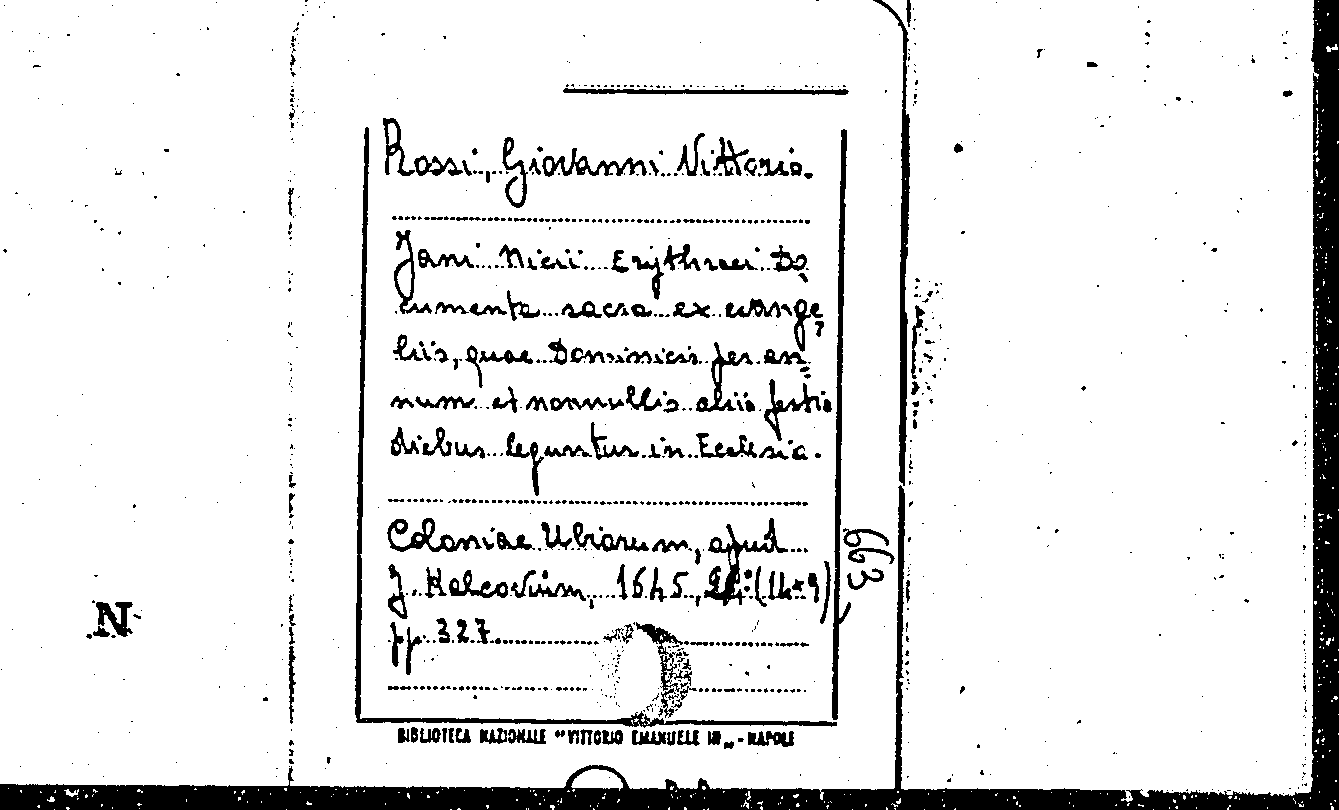 Rossi, Giovanni Vittorio.
Jani Nicii Erythraei Do
cumenta sacra ex evange
liis, quae Dominicis per an
num et nonnullis aliis festis
diebus leguntur in Ecclesia.
Coloniae Ubiorum, apud
J. Kalcovium, 1645, (14*9)
pp. 327.
663
N
BIBLIOTECA NAZIONALE "VITTORIO EMANUELE III" - NAPOLI